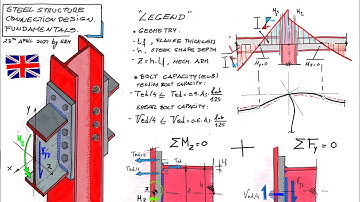 STEEL STRUCTURE
CONNECTION DESIGN.
FUNDAMENTALS.
23TH APRIL 2021 by EBH
"LEGEND"
• GEOMETRY:
- tf, FLANGE THICKNESS
- h, STEEL SHAPE DEPTH
- Z=h-tf, MECH. ARM
• BOLT CAPACITY (EC3)
TENSION BOLT CAPACITY:
- Ted/4 ≤ Ted=0.9·As·fub/1.25
SHEAR BOLT CAPACITY:
- Ved/4 ≤ Ved=0.6·As·fub/1.25
Mz
Mz
Mz=0
Mz=0
ΣMz=0
+
ΣFy=0
Ted/4
Ted/4
Ted
tf
h
Z
Mz
Ved/4
Fy
X
Z